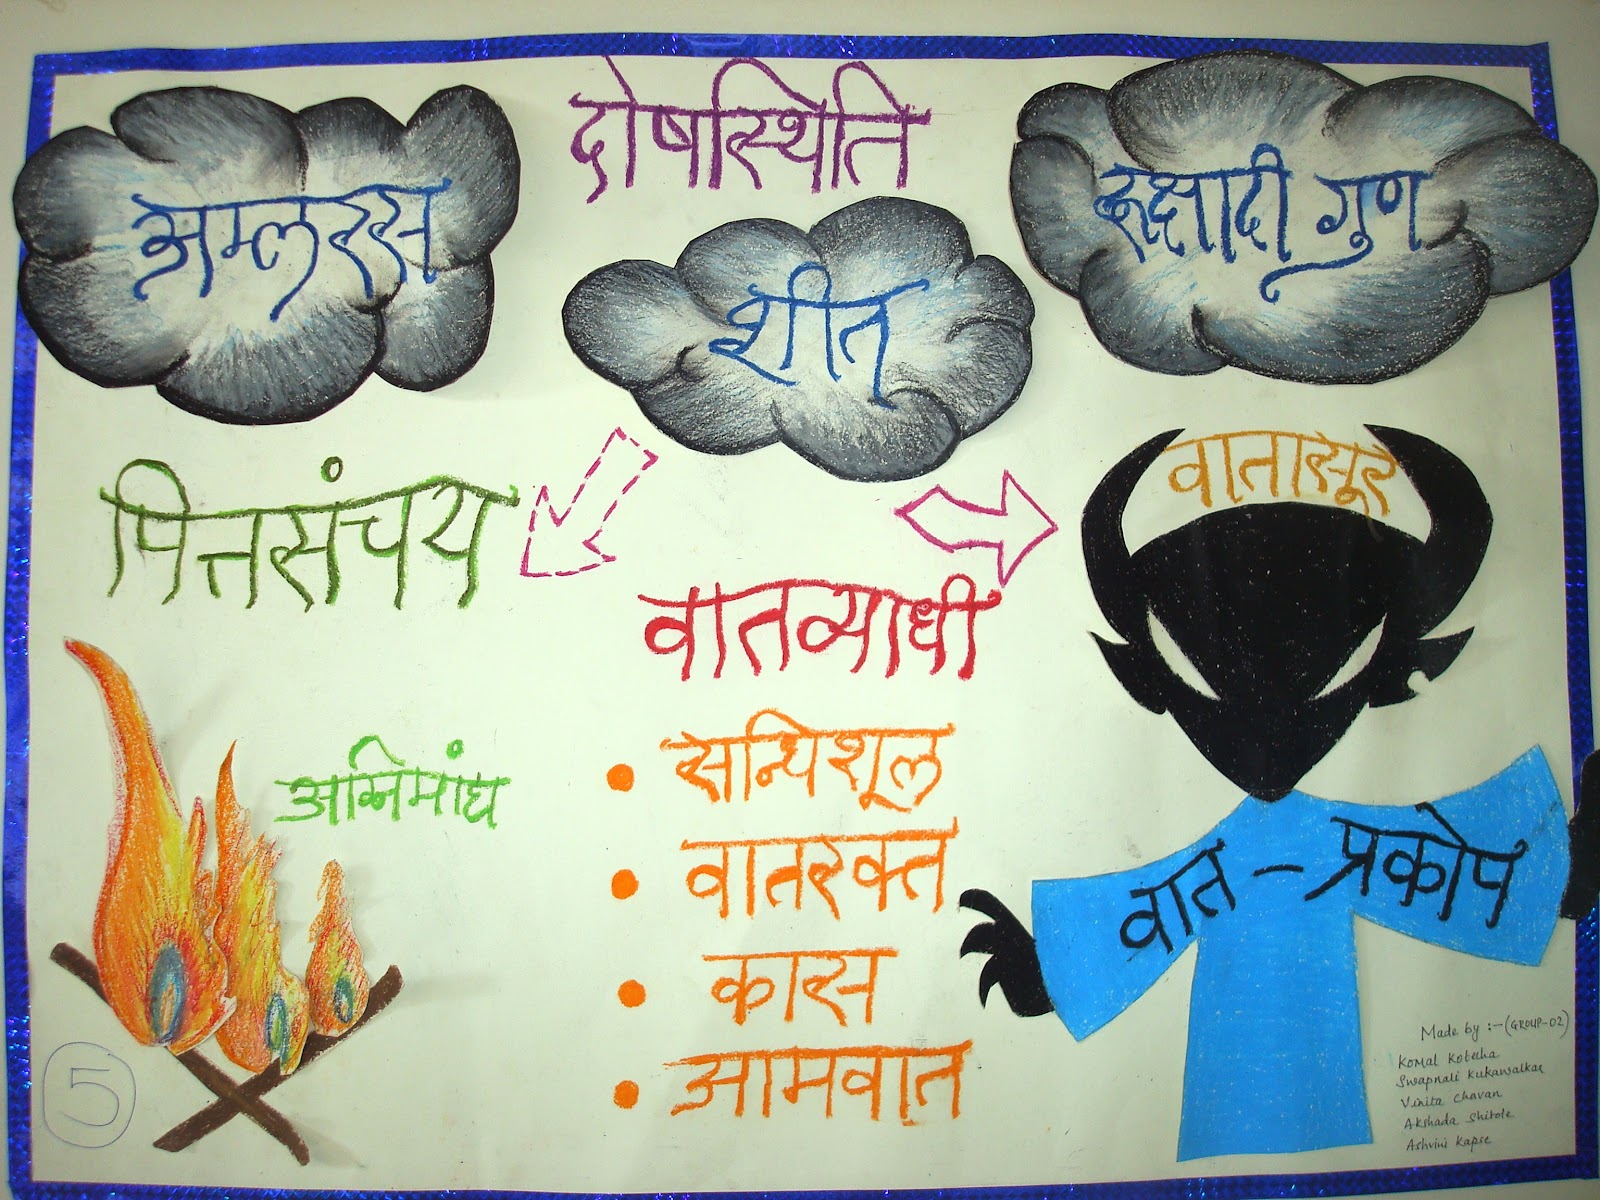 दोषस्थिति
अम्लरस
शीत
रूक्षादी गुण
पित्तसंचय
वातासूर
वातव्याधी
अग्निमांद्य
• सन्धिशूल
• वातरक्त
• कास
• आमवात
वात - प्रकोप
5
Made by :- (GROUP-02)
Komal Kotecha
Swapnali Kukawalkar
Vinita Chavan
Akshada Shitole
Ashvini Kapse